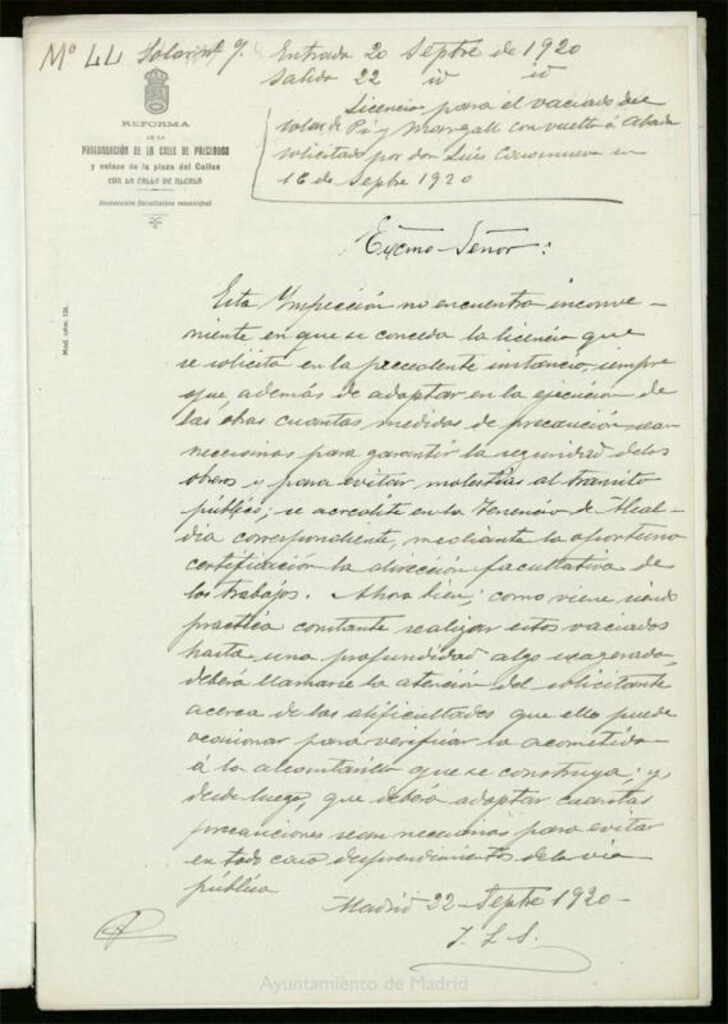 Nº 44 Solar nº 9. Entrada 20 Septre de 1920
Salida 22 id id
REFORMA
DE LA
PROLONGACIÓN DE LA CALLE DE PRECIADOS
y enlace de la plaza del Callao
CON LA CALLE DE ALCALÁ
Inspección facultativa municipal
Licencia para el vaciado del
solar de Pí y Margall con vuelta á Abada
solicitado por don Luis en
16 de Septre 1920
Excmo Señor:
Mod. núm. 125.
Esta Ynspección no encuentra inconve-
niente en que se conceda la licencia que
se solicita en la precedente instancia, siempre
que, además de adoptar en la ejecución de
las obras cuantas medidas de precaución sean
necesarias para garantir la seguridad de los
obreros y para evitar molestias al tránsito
público; se acredite en la Tenencia de Alcal-
día correspondiente, mediante la oportuna
certificación la dirección facultativa de
los trabajos. Ahora bien; como viene siendo
práctica constante realizar estos vaciados
hasta una profundidad algo exagerada,
deberá llamarse la atención del solicitante
acerca de las dificultades que ello puede
ocasionar para verificar la acometida
á la alcantarilla que se construya; y,
desde luego, que deberá adoptar cuantas
precauciones sean necesarias para evitar
en todo caso desprendimientos de la vía
pública
Madrid 22 Septre 1920-
Ayuntamiento de Madrid